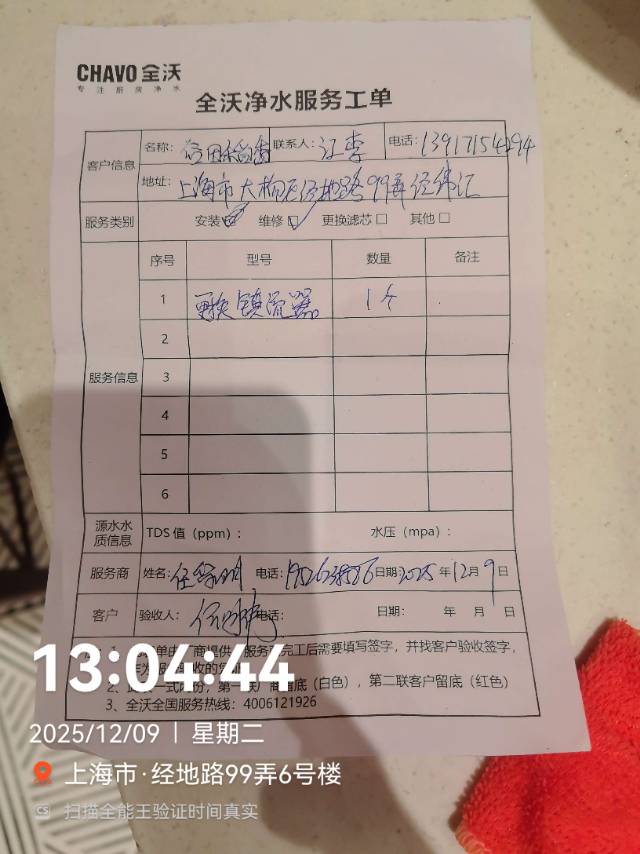 CHAVO 全沃
专注厨房净水
全沃净水服务工单
客户信息 名称: 联系人: 江李 电话: 13917154294
地址: 上海市 路99弄经纬汇
服务类别 安装 维修 更换滤芯 其他
服务信息 序号 型号 数量 备注
1 更换镇流器 1个
2
3
4
5
6
源水水质信息 TDS 值（ppm）: 水压（mpa）:
服务商 姓名: 电话: 日期: 2025 年 12 月 9 日
客户 验收人: 电话: 日期: 年 月 日
1、 单由 商提供 服务 完工后需要填写签字，并找客户验收签字，
2、 一式 份，第一联厂商留底（白色），第二联客户留底（红色）
3、全沃全国服务热线：4006121926
13:04:44
2025/12/09 | 星期二
上海市·经地路99弄6号楼
CS 扫描全能王验证时间真实